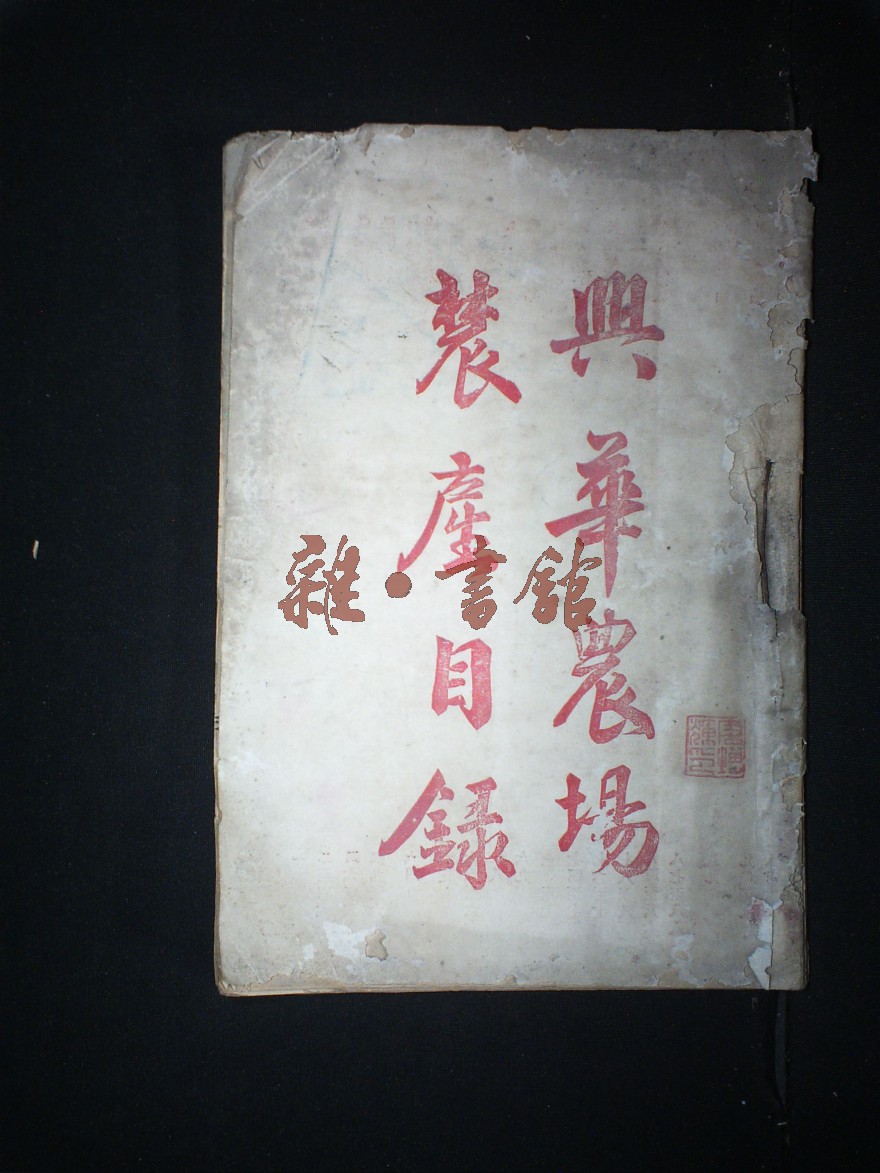 興華農場
農產目錄
雜·書館